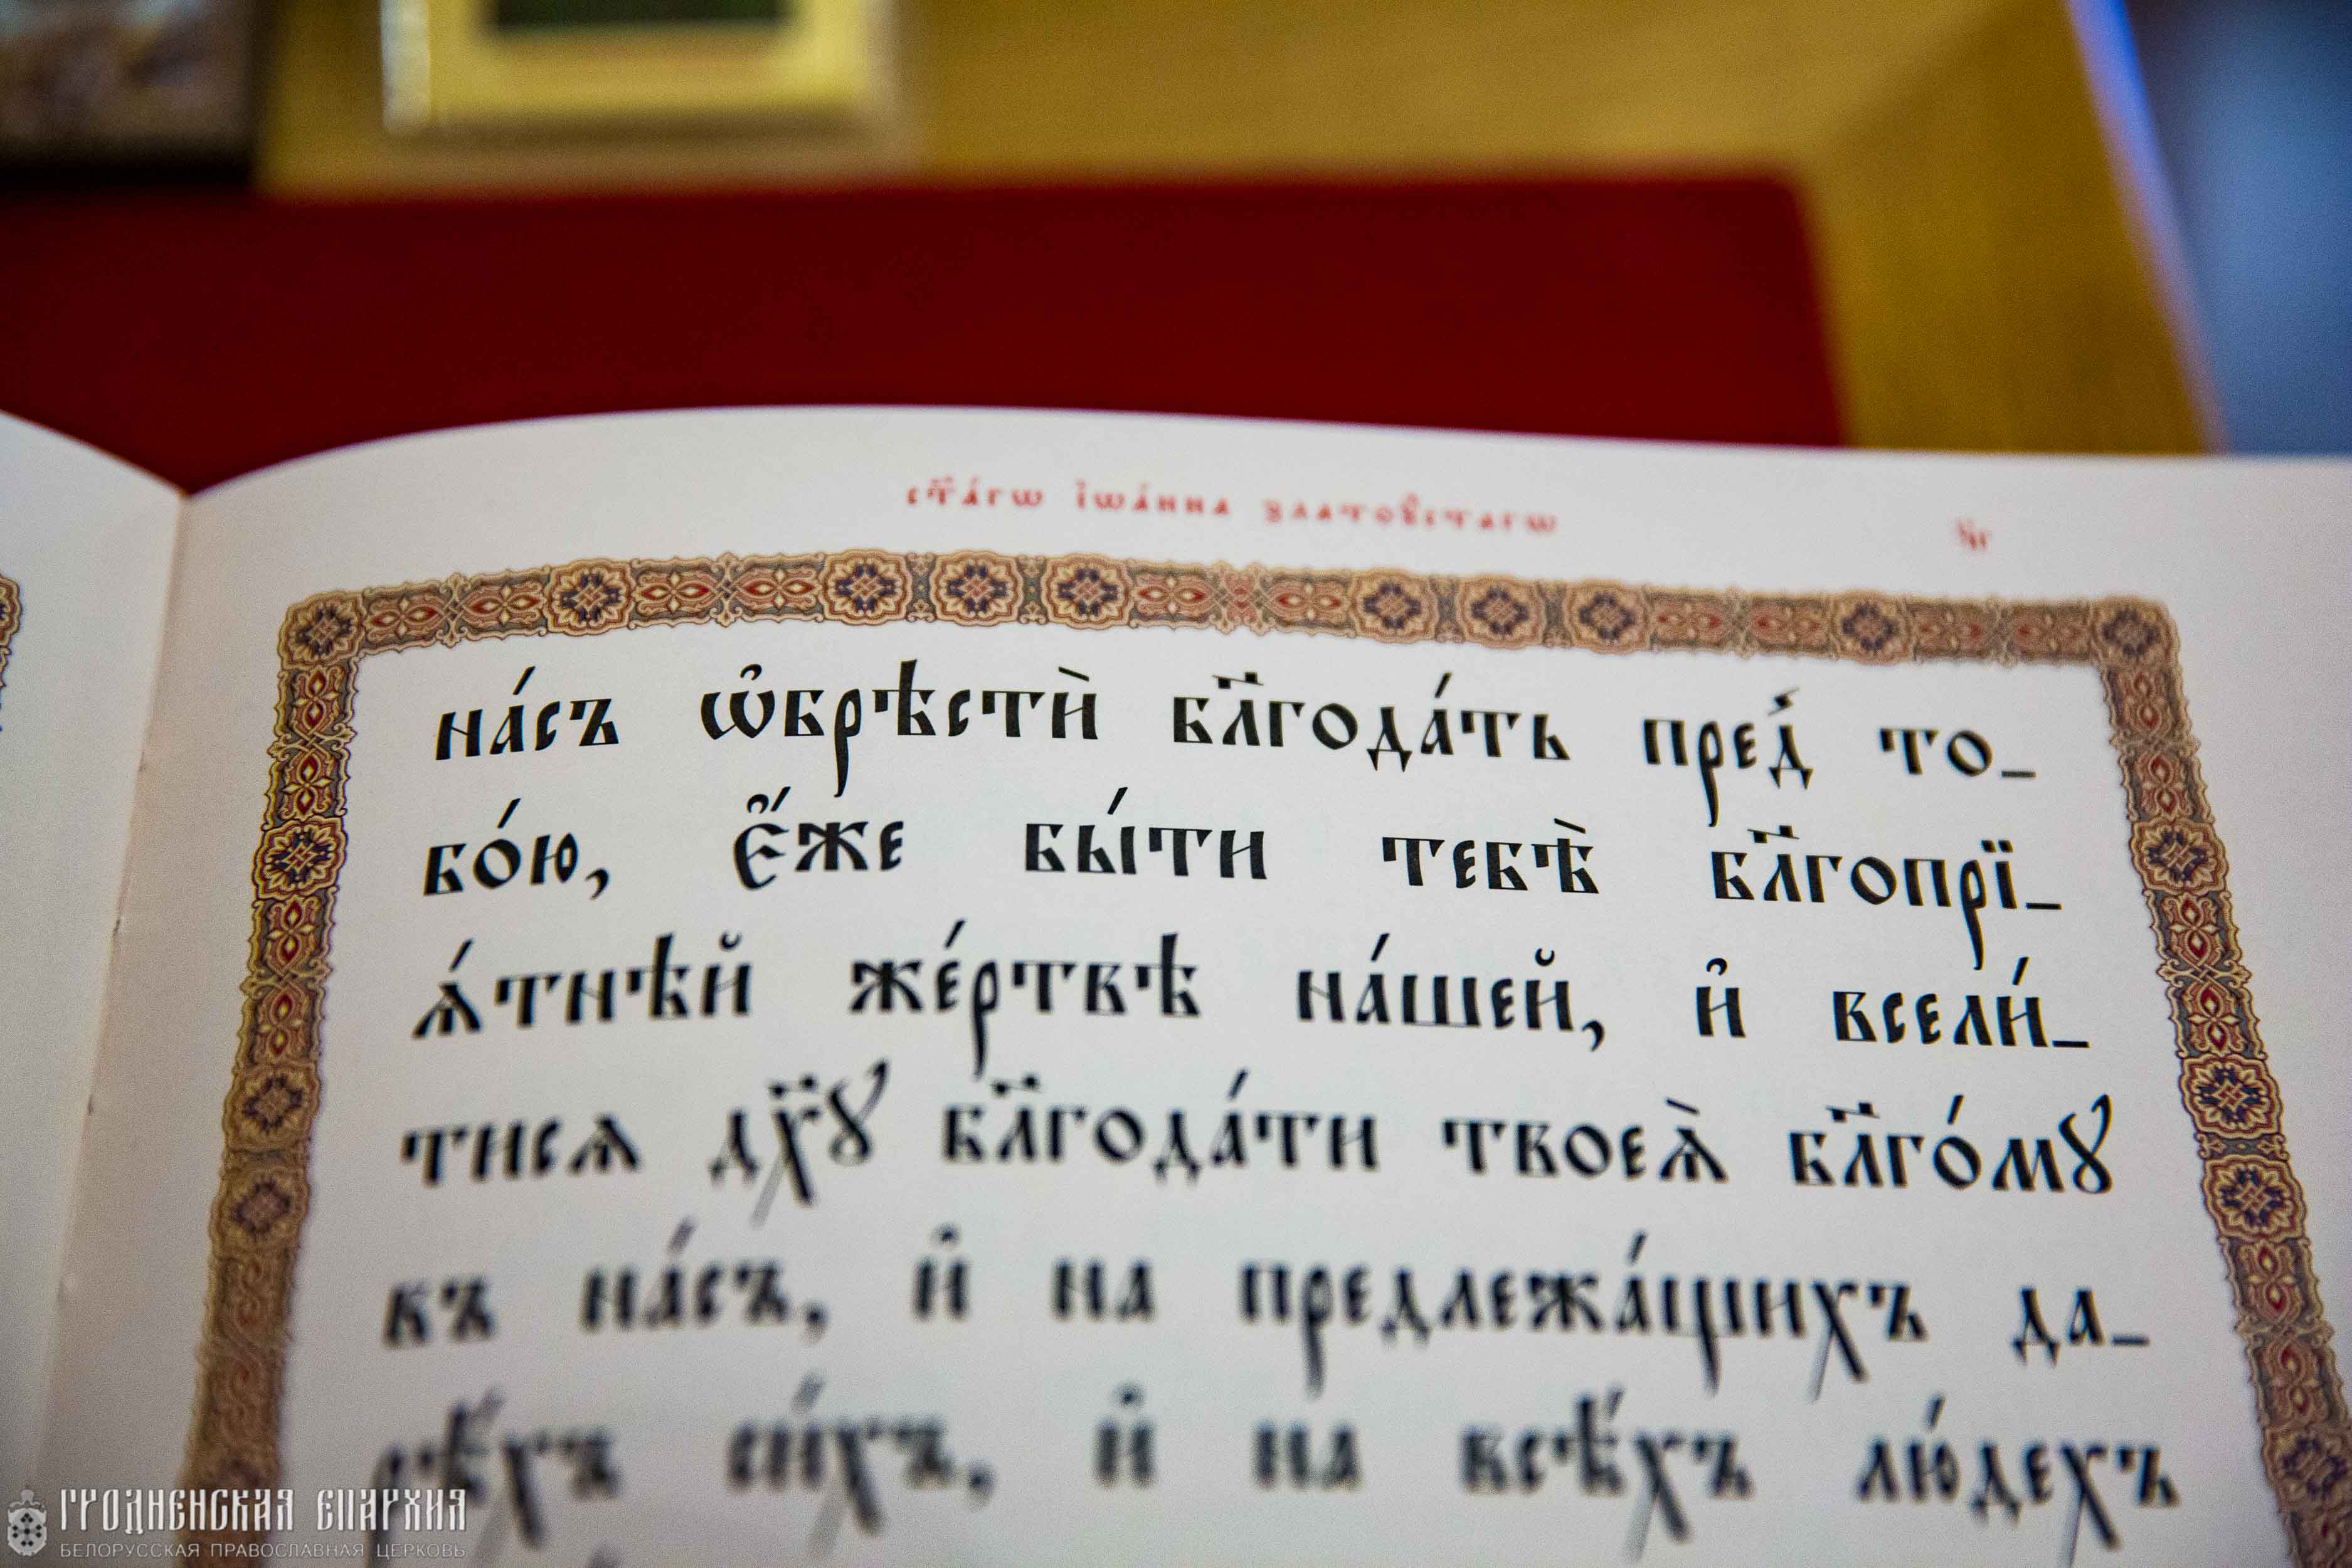 ст҃а́гѡ і҆ѡа́нна златоꙋ́стагѡ
на́съ ѡ҆брѣстѝ бл҃года́ть пред̾ то_
бо́ю, є҆́же бы́ти тебѣ̀ бл҃гопрї_
ѧ́тнѣй же́ртвѣ на́шей, и҆ всели́_
тисѧ дх҃ꙋ бл҃года́ти твоеѧ̀ бл҃го́мꙋ
въ на́съ, и҆ на предлежа́щихъ да_
рѣ́хъ си́хъ, и҆ на всѣ́хъ лю́дехъ
ГРОДНЕНСКАЯ ЕПАРХИЯ
БЕЛОРУССКАЯ ПРАВОСЛАВНАЯ ЦЕРКОВЬ